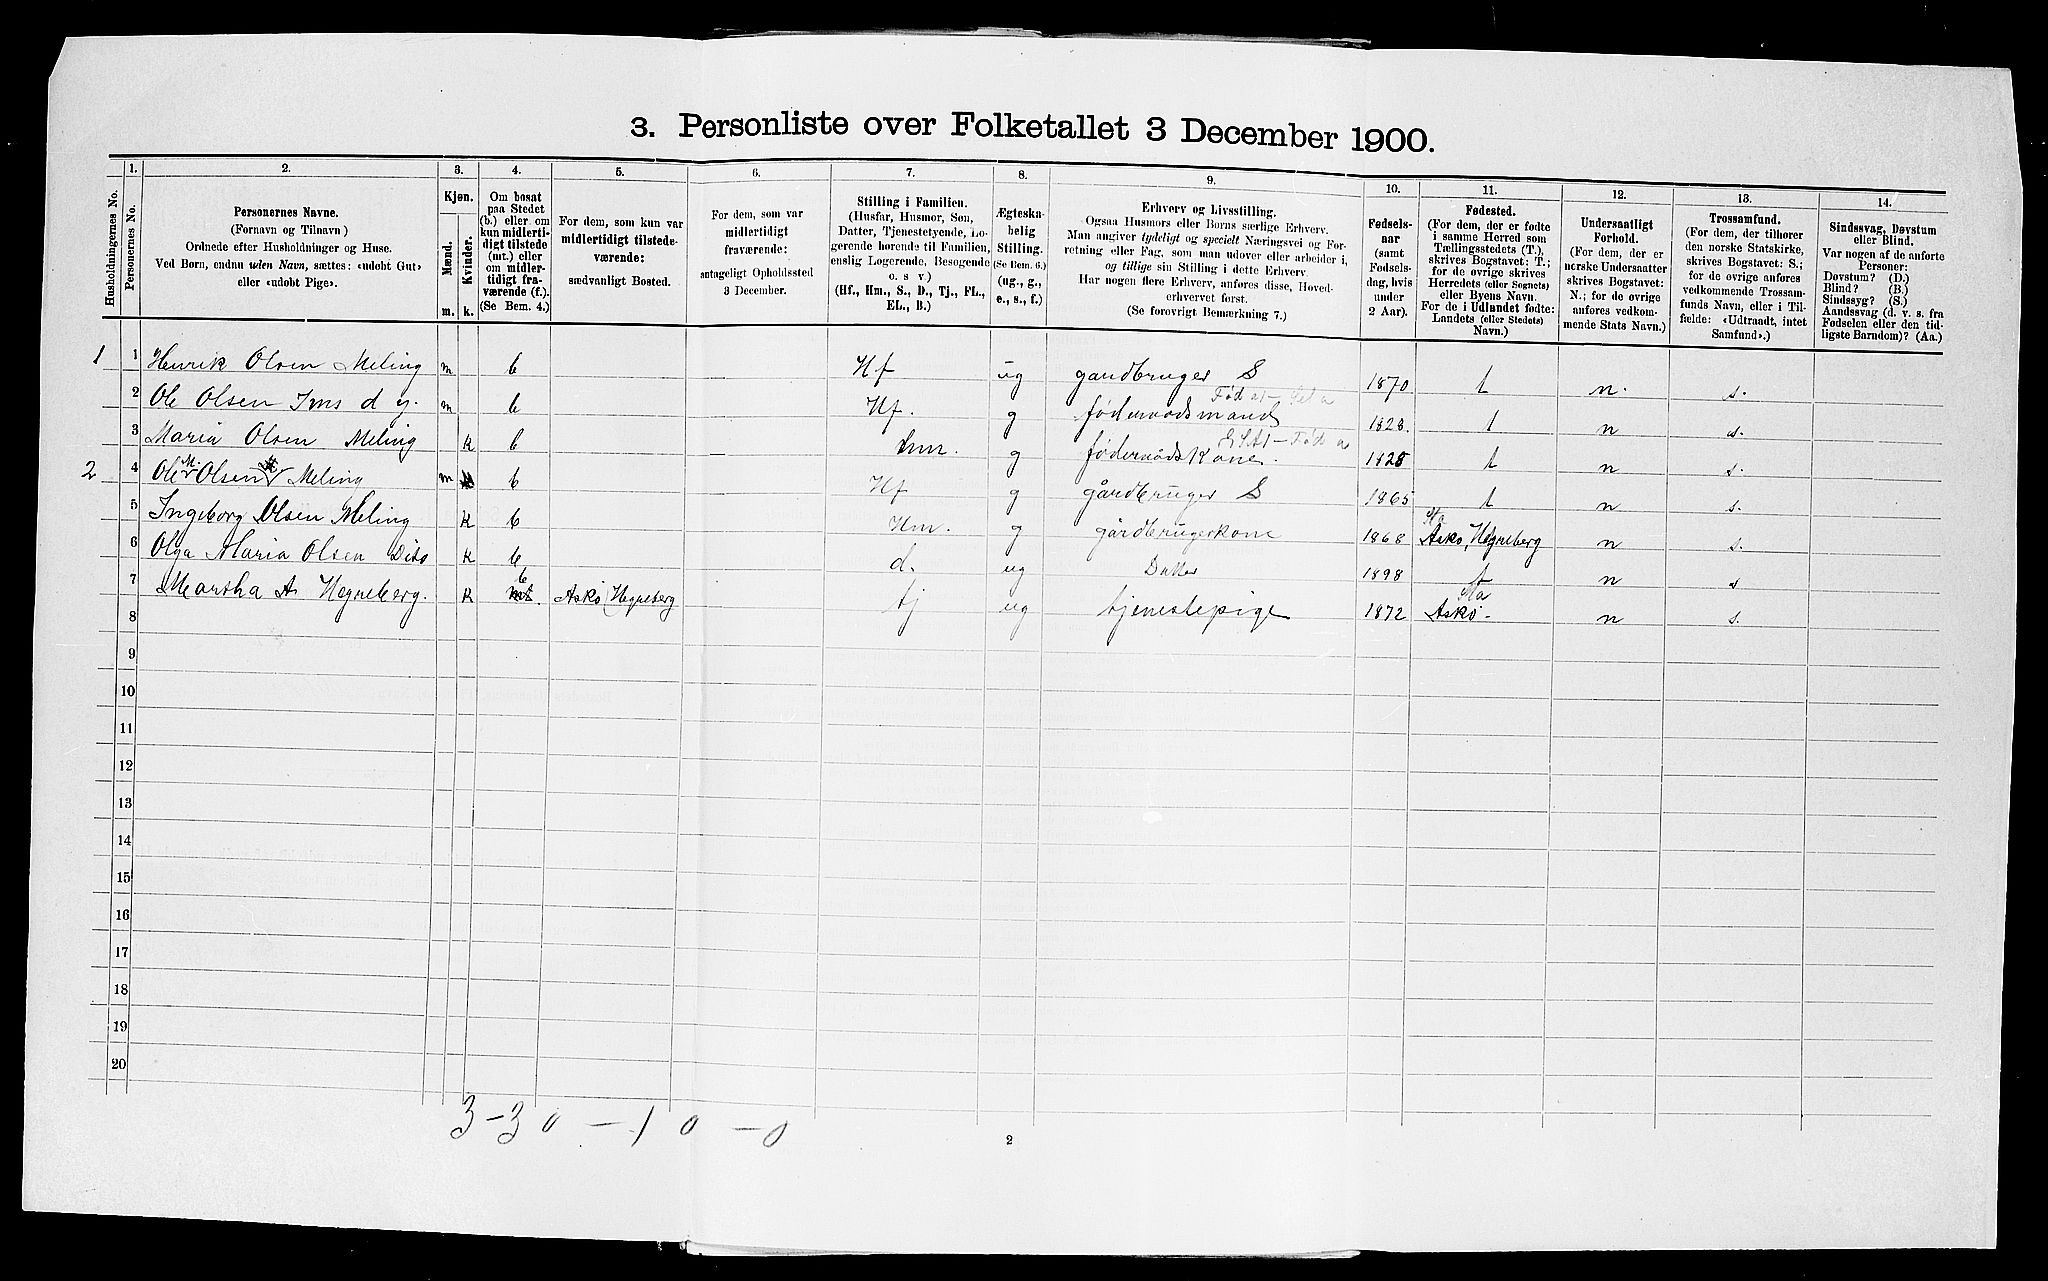 3. Personliste over Folketallet 3 December 1900.
1. 2. 3. 4. 5. 6. 7. 8. 9. 10. 11. 12. 13. 14.
Husholdningernes No.
Personernes No.
Personernes Navne.
(Fornavn og Tilnavn)
Ordnede efter Husholdninger og Huse.
Ved Børn, endnu uden Navn, sættes: «udøbt Gut»
eller «udøbt Pige».
Kjøn.
Mænd.
Kvinder.
m. k.
Om bosat
paa Stedet
(b.) eller om
kun midlerti-
digt tilstede
(mt.) eller
om midler-
tidigt fra-
værende (f.).
(Se Bem. 4.)
For dem, som kun var
midlertidigt tilstede-
værende:
sædvanligt Bosted.
For dem, som var
midlertidigt
fraværende:
antageligt Opholdssted
3 December.
Stilling i Familien.
(Husfar, Husmor, Søn,
Datter, Tjenestetyende, Lo-
gerende hørende til Familien,
enslig Logerende, Besøgende
o. s v.)
(Hf., Hm., S., D., Tj., FL.,
EL., B.)
Ægteska-
belig
Stilling.
(Se Bem. 6.)
(ug., g.,
e., s., f.)
Erhverv og Livsstilling.
Ogsaa Husmors eller Børns særlige Erhverv.
Man angiver tydeligt og specielt Næringsvei og For-
retning eller Fag, som man udøver eller arbeider i,
og tillige sin Stilling i dette Erhverv.
Har nogen flere Erhverv, anføres disse, Hoved-
erhvervet først.
(Se forøvrigt Bemærkning 7.)
Fødsels-
aar
(samt
Fødsels-
dag, hvis
under
2 Aar).
Fødested.
(For dem, der er fødte
i samme Herred som
Tællingsstedets (T.),
skrives Bogstavet: T.;
for de øvrige skrives
Herredets (eller Sognets)
eller Byens Navn.
For de i Udlandet fødte:
Landets (eller Stedets)
Navn.)
Undersaatligt
Forhold.
(For dem, der er
norske Undersaatter
skrives Bogstavet:
N.; for de øvrige
anføres vedkom-
mende Stats Navn.)
Trossamfund.
(For dem, der tilhører
den norske Statskirke,
skrives Bogstavet: S.;
for de øvrige anføres
vedkommende Trossam-
funds Navn, eller i Til-
fælde: «Udtraadt, intet
Samfund».)
Sindssvag, Døvstum
eller Blind.
Var nogen af de anførte
Personer:
Døvstum? (D.)
Blind? (B.)
Sindssyg? (S.)
Aandssvag (d. v. s. fra
Fødselen eller den tid-
ligste Barndom)? (Aa.)
1 1 Henrik Olsen Meling m b Hf ug gardbruger S 1870 t n. s.
2 Ole Olsen Ims d y. m b Hf. g føderaadsmand 1828. t n s.
3 Maria Olsen Meling k b hm. g føderaadskone. 1828 t n s.
2 4 Ole M. Olsen Meling m b Hf g gårdbruger S 1865 t n s.
5 Ingeborg Olsen Meling K b Hm. g gårdbrugerkone 1868 Askø, Hegreberg n s.
6 Olga Maria Olsen Dito K b d. ug Datter 1898 t n s
7 Martha A Hegreberg. K b mt. Askø Hegreberg tj ug tjenestepige 1872 Askø. n s.
8
9
10
11
12
13
14
15
16
17
18
19
20
3 – 3 0 – 1 0 – 0
2